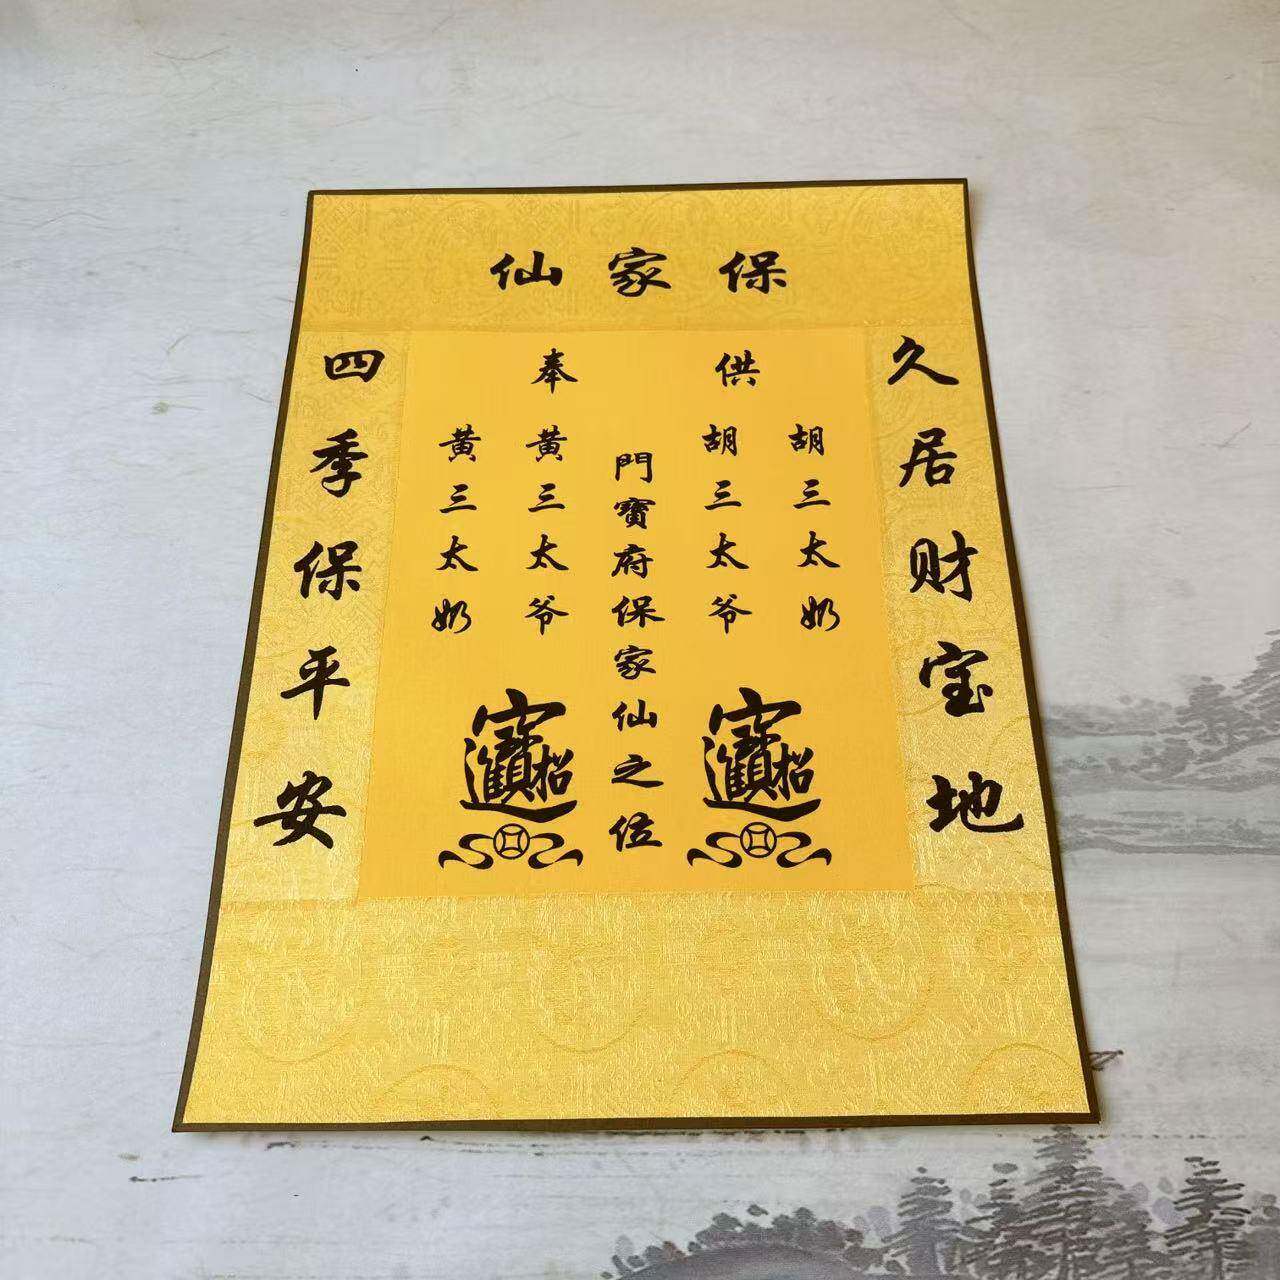 保家仙
久居财宝地
供奉
胡三太奶
胡三太爷
門寶府保家仙之位
黄三太爷
黄三太奶
四季保平安
招財進寶
招財進寶